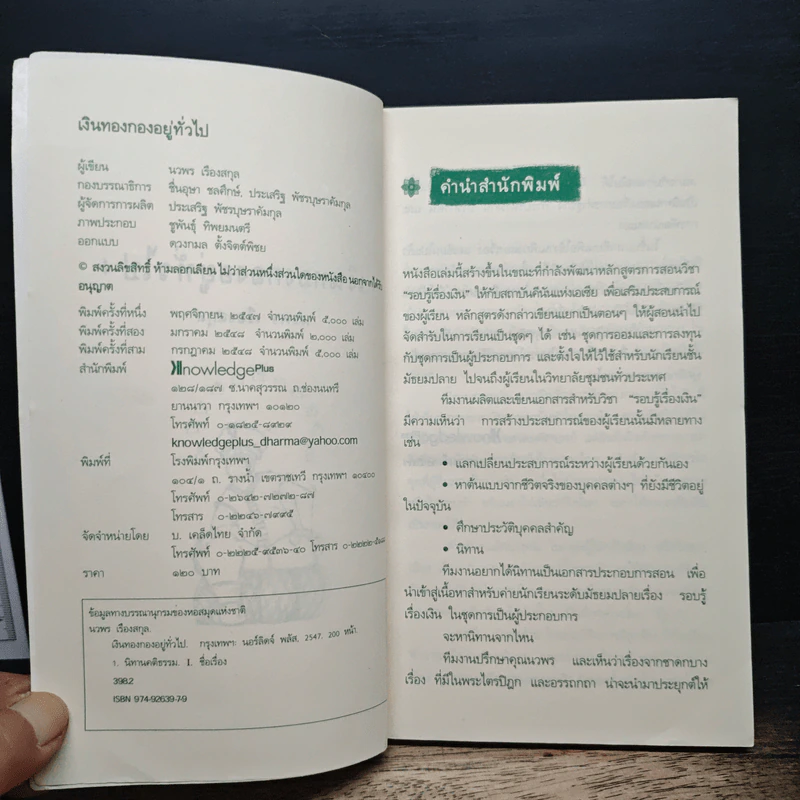 เงินทองกองอยู่ทั่วไป
ผู้เขียน นวพร เรืองสกุล
กองบรรณาธิการ ชื่นอุษา ชลศึกษ์, ประเสริฐ พัชรบุษราคัมกุล
ผู้จัดการการผลิต ประเสริฐ พัชรบุษราคัมกุล
ภาพประกอบ ชูพันธุ์ ทิพยมนตรี
ออกแบบ ดุวงกมล ตั้งจิตต์พิชย
© สงวนลิขสิทธิ์ ห้ามลอกเลียน ไม่ว่าส่วนหนึ่งส่วนใดของหนังสือ นอกจากได้รับ
อนุญาต
พิมพ์ครั้งที่หนึ่ง พฤศจิกายน ๒๕๔๗ จำนวนพิมพ์ ๕,๐๐๐ เล่ม
พิมพ์ครั้งที่สอง มกราคม ๒๕๔๘ จำนวนพิมพ์ ๒,๐๐๐ เล่ม
พิมพ์ครั้งที่สาม กรกฎาคม ๒๕๔๘ จำนวนพิมพ์ ๕,๐๐๐ เล่ม
สำนักพิมพ์ Knowledge Plus
๑๒๘/๑๘๗ ซ.นาคสุวรรณ ถ.ช่องนนทรี
ยานนาวา กรุงเทพฯ ๑๐๑๒๐
โทรศัพท์ ๐-๑๘๒๕-๘๙๒๙
knowledgeplus_dharma@yahoo.com
พิมพ์ที่ โรงพิมพ์กรุงเทพฯ
๑๐๔/๑ ถ. รางน้ำ เขตราชเทวี กรุงเทพฯ ๑๐๔๐๐
โทรศัพท์ ๐-๒๖๔๒-๗๒๗๒-๘๗
โทรสาร ๐-๒๒๔๖-๗๙๙๕
จัดจำหน่ายโดย บ. เคล็ดไทย จำกัด
โทรศัพท์ ๐-๒๒๒๕-๙๕๓๖-๔๐ โทรสาร
ราคา ๑๒๐ บาท
ข้อมูลทางบรรณานุกรมของหอสมุดแห่งชาติ
นวพร เรืองสกุล.
เงินทองกองอยู่ทั่วไป. กรุงเทพฯ: นอร์ลิดจ์ พลัส, 2547. 200 หน้า.
1. นิทานคติธรรม. I. ชื่อเรื่อง
398.2
ISBN 974-92639-7-9
คำนำสำนักพิมพ์
หนังสือเล่มนี้สร้างขึ้นในขณะที่กำลังพัฒนาหลักสูตรการสอนวิชา
“รอบรู้เรื่องเงิน” ให้กับสถาบันคีนันแห่งเอเซีย เพื่อเสริมประสบการณ์
ของผู้เรียน หลักสูตรดังกล่าวเขียนแยกเป็นตอนๆ ให้ผู้สอนนำไป
จัดสำรับในการเรียนเป็นชุดๆ ได้ เช่น ชุดการออมและการลงทุน
กับชุดการเป็นผู้ประกอบการ และตั้งใจให้ไว้ใช้สำหรับนักเรียนชั้น
มัธยมปลาย ไปจนถึงผู้เรียนในวิทยาลัยชุมชนทั่วประเทศ
ทีมงานผลิตและเขียนเอกสารสำหรับวิชา “รอบรู้เรื่องเงิน”
มีความเห็นว่า การสร้างประสบการณ์ของผู้เรียนนั้นมีหลายทาง
เช่น
• แลกเปลี่ยนประสบการณ์ระหว่างผู้เรียนด้วยกันเอง
• หาต้นแบบจากชีวิตจริงของบุคคลต่างๆ ที่ยังมีชีวิตอยู่
ในปัจจุบัน
• ศึกษาประวัติบุคคลสำคัญ
• นิทาน
ทีมงานอยากได้นิทานเป็นเอกสารประกอบการสอน เพื่อ
นำเข้าสู่เนื้อหาสำหรับค่ายนักเรียนระดับมัธยมปลายเรื่อง รอบรู้
เรื่องเงิน ในชุดการเป็นผู้ประกอบการ
จะหานิทานจากไหน
ทีมงานปรึกษาคุณนวพร และเห็นว่าเรื่องจากชาดกบาง
เรื่อง ที่มีในพระไตรปิฎก และอรรถกถา น่าจะนำมาประยุกต์ให้